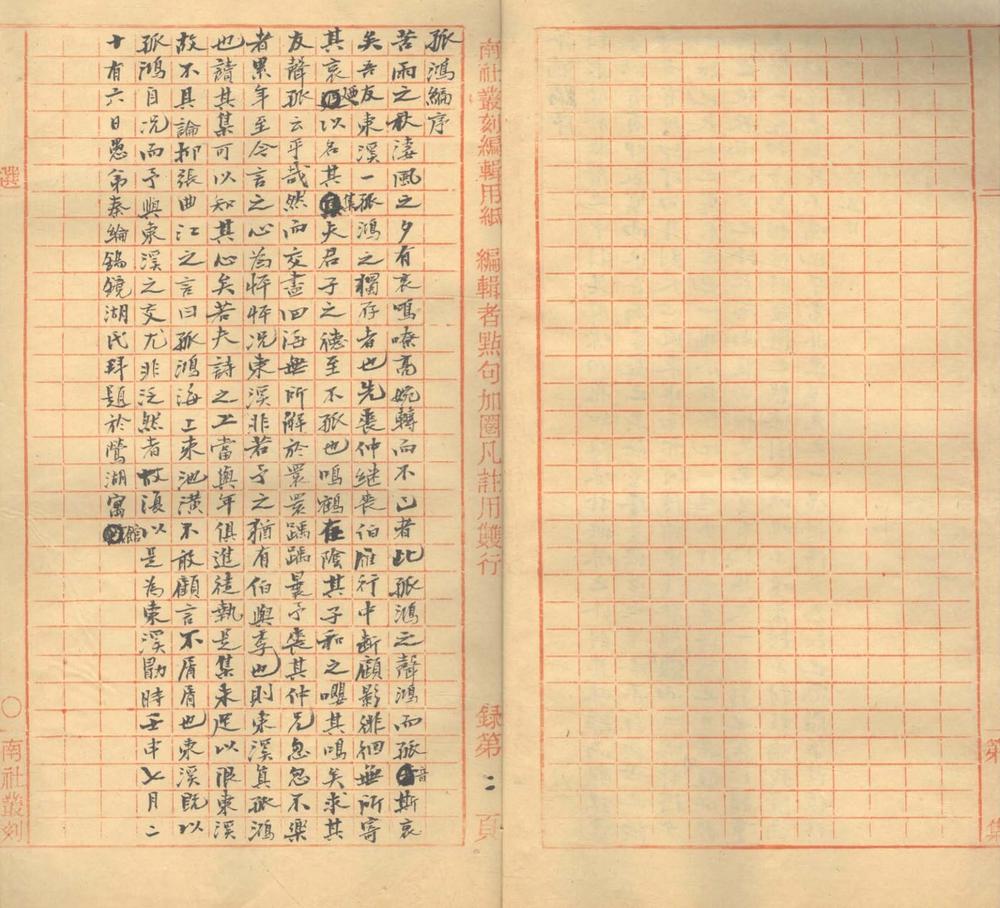 第 集
南社叢刻編輯用紙 編輯者點句加圈凡註用雙行 錄第二頁
孤鴻編序
苦雨之秋淒風之夕有哀鳴嘹高婉轉而不已者此孤鴻之聲鴻而孤音斯哀
矣吾友東溪一孤鴻之獨存者也先喪仲繼喪伯雁行中斷顧影徘徊無所寄
其哀迺以名其集夫君子之德至不孤也鳴鶴在陰其子和之嚶其鳴矣求其
友聲孤云乎哉然而交盡四海無所解於睘睘踽踽曩予喪其仲兄忽忽不樂
者累年至今言之心為怦怦況東溪非若予之猶有伯與季也則東溪真孤鴻
也讀其集可以知其心矣若夫詩之工當與年俱進徒執是集未足以限東溪
故不具論抑張曲江之言曰孤鴻海上來池潢不敢顧言不屑屑也東溪既以
孤鴻自况而予與東溪之交尤非泛然者故復以是為東溪勗時壬申七月二
十有六日愚弟秦綸錫鏡湖氏拜題於鶯湖寓館
選 〇 南社叢刻